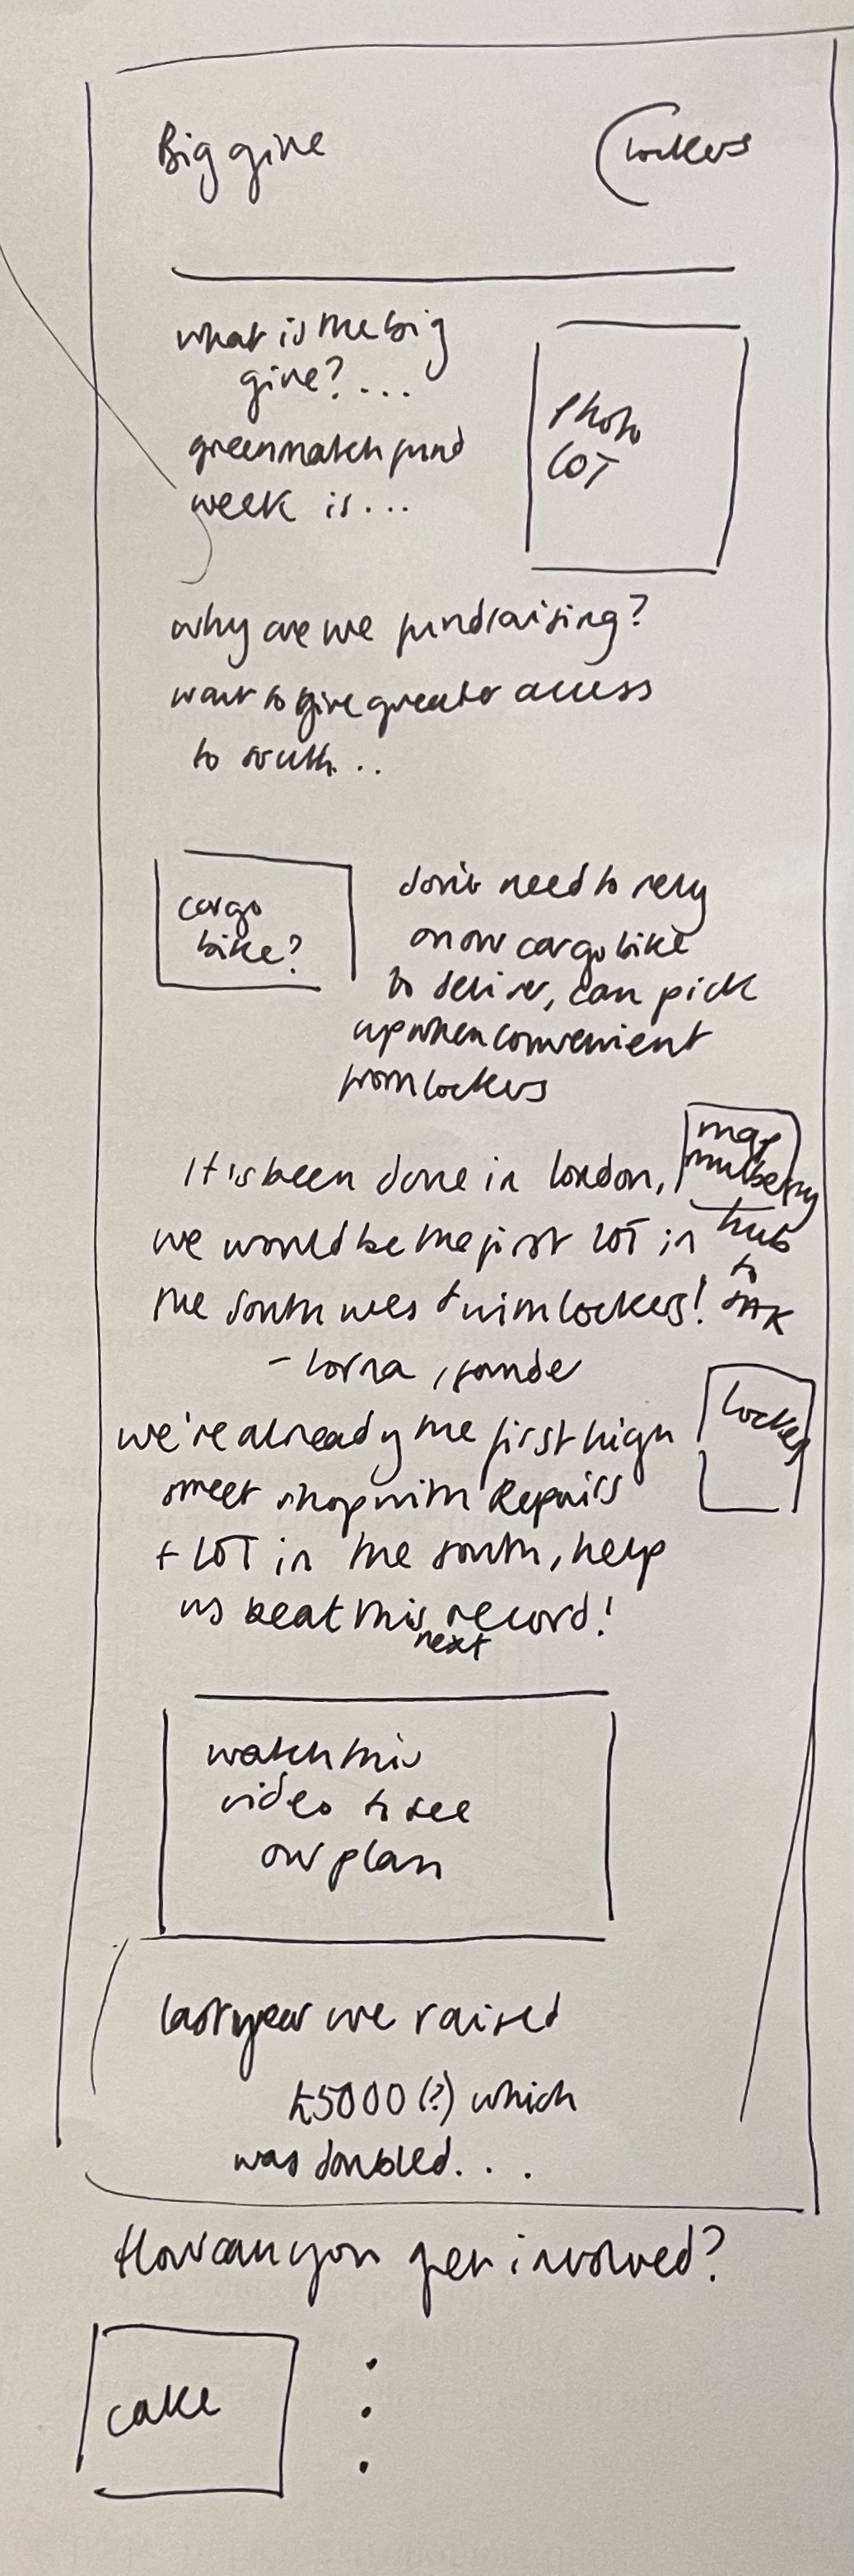 Big give
lockers
what is the big
give? ...
green match fund
week is ...
Photo
LOT
why are we fundraising?
want to give greater access
to south ..
cargo
bike?
don't need to rely
on our cargo bike
to deliver, can pick
up when convenient
from lockers
It's been done in london,
map
mulberry
hub
to
we would be the first LOT in
the south west with lockers!
- lorna,
we're already the first high
street shop with Repairs
+ LOT in the south, help
us beat this record!
next
locker
watch this
video to see
our plan
last year we raised
£5000 (?) which
was doubled. . .
How can you get involved?
cake